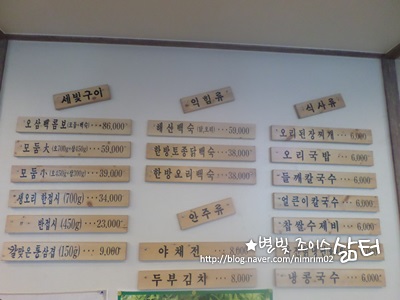 세빛구이
오삼백콤보(모둠+백숙)···86,000
모둠大(오700g+삼450g)···59,000
모둠小(오450g+삼300g)···39,000
생오리 한접시 (700g)···34,000
반접시 (450g)···23,000
칼맞은통삼겹 (150g)···9,000
익힘류
해산백숙···59,000
한방토종닭백숙···38,000
한방오리백숙···38,000
안주류
야채전···8,000
두부김차···8,000
식사류
오리된장찌개···6,000
오리국밥···6,000
들깨칼국수···6,000
얼큰이칼국수···6,000
찹쌀수제비···6,000
냉콩국수···6,000
★별빛 조이스 삶터
http://blog.naver.com/nimrim02